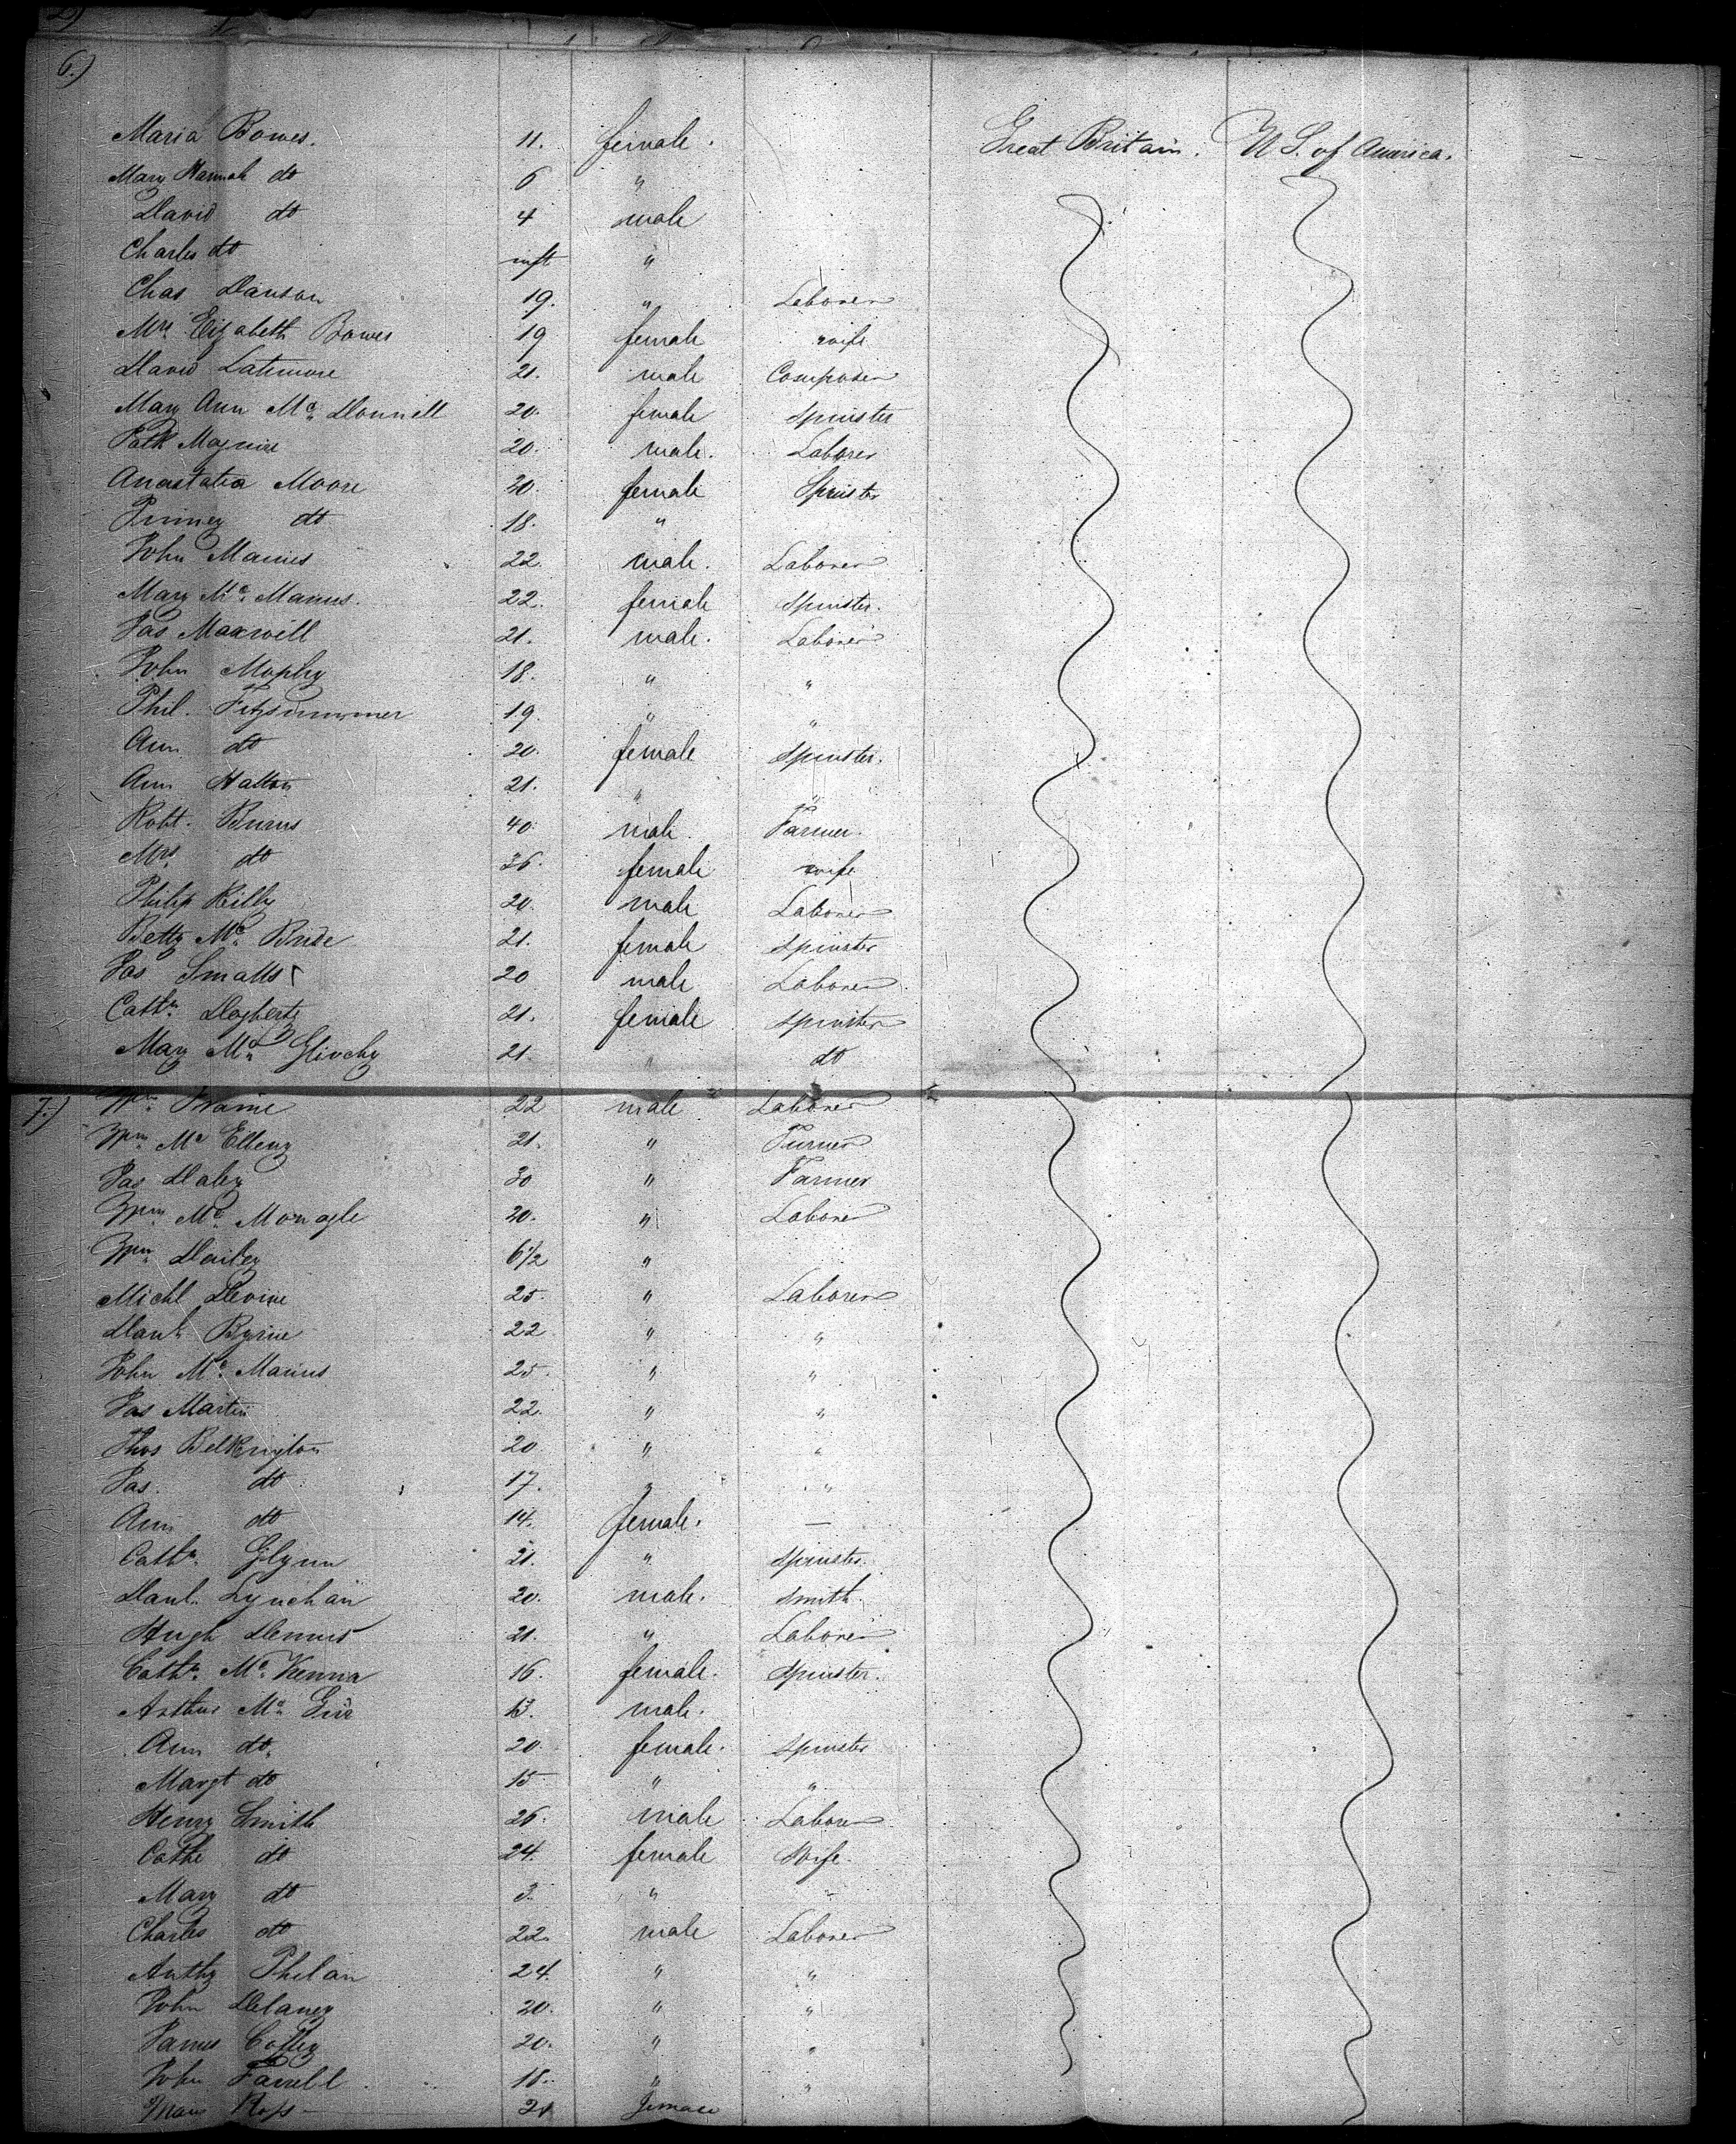 6.)
Maria Bowes. 11. female. Great Britain. U S. of America.
Mary Hannah do 6 "
David do 4 male
Charles do inft "
Chas Danson 19. " Laborer
Mrs Elizabeth Bowes 19 female wife
David Latimore 21. male Composer
Mary Ann Mc Donnell 20. female Spinster
Patk Maguire 20. male. Laborer
Anastatia Moore 20. female Spinster
do 18. "
John Manus 22. male. Laborer
Mary Mc Manus. 22. female Spinster.
Jas Maxwell 21. male. Laborer
John Mophy 18. " "
Phil. Fitzsimmer 19. " "
Ann do 20. female Spinster.
Ann Hatton 21. " "
Robt. Burns 40. male. Farmer.
Mrs do 36. female wife
Philip Rilly 20. male Laborer
Betty Mc Bride 21. female Spinster
Jas Smalls 20 male Laborer
Cathn. Dogherty 21. female Spinster
Mary Mc Glinchy 21. " do
7.) Wm. 22 male Laborer
Wm Mc Elleny 21. " Turner
Jas Daley 30 " Farmer
Wm Mc Monagle 20. " Laborer
Wm Dailey 6 1/2 "
Michl Devine 25. " Laborer
Danl. Byrne 22 " "
John Mc Manus 25. " "
Jas Martin 22. " "
Thos Belkington 20 " "
Jas. do 17. " "
Ann do 14. female. —
Cathn. Glynn 21. " Spinster.
Danl. Lynchan 20. male. Smith.
Hugh Dennis 21. " Laborer
Cathn. Mc Kenna 16. female. Spinster.
Arthur Mc 13. male.
Ann do. 20. female. Spinster
Margt do 15 " "
Henry Smith 26. male Laborer
Cathe do 24. female Wife.
Mary do 3. "
Charles do 22. male Laborer
Anthy Phelan 24. " "
John Delaney 20. " "
James Coffey 20. " "
John Farrell 18. " "
Mary Ross 21 female